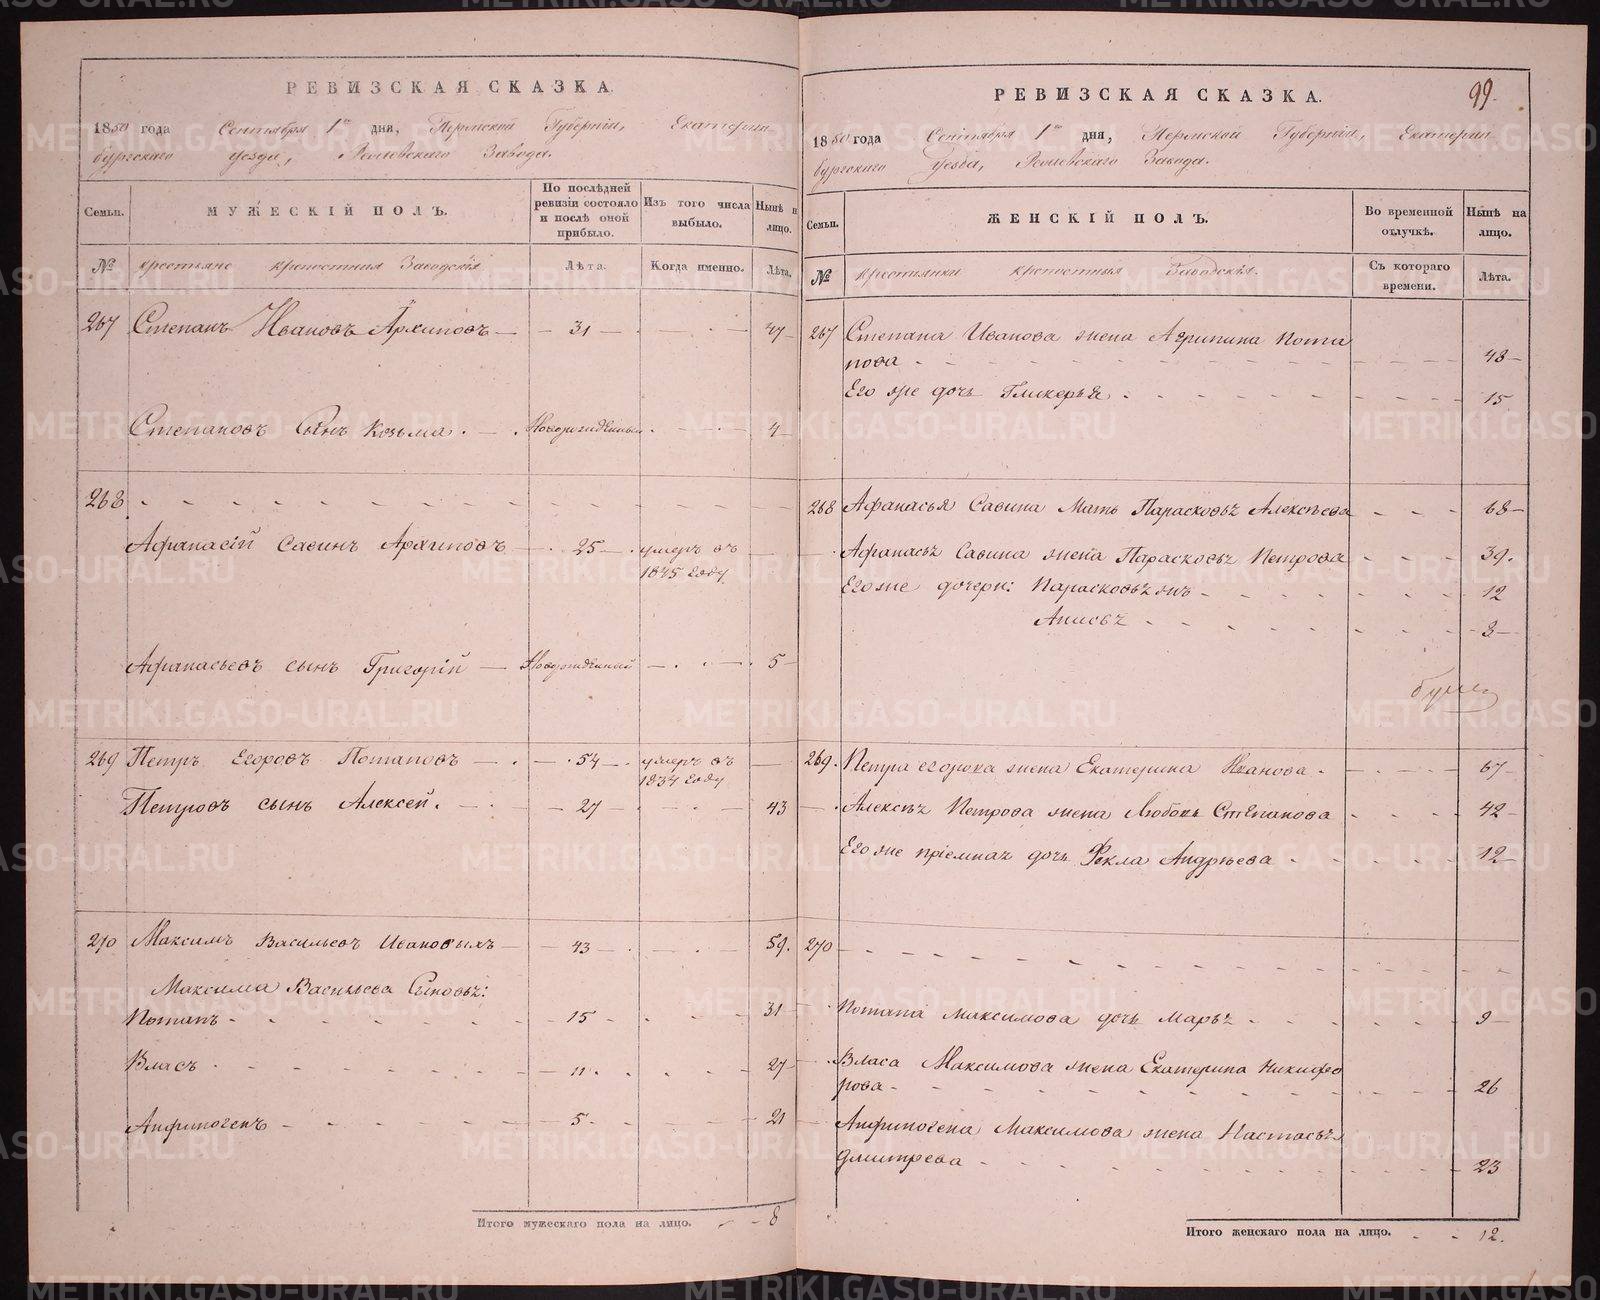 РЕВИЗСКАЯ СКАЗКА.
1850 года Сентября 1го дня, Пермской Губерніи, Екатерин
бургскаго уезда, Завода.
Семьи. МУЖЕСКІЙ ПОЛЪ. По послѣдней ревизіи состояло и послѣ оной прибыло. Изъ того числа выбыло. Нынѣ н лицо.
№ крестьяне крепостныя Заводскія Лѣта. Когда именно. Лѣта.
267 Степанъ Ивановъ Архиповъ 31 47
Степановъ Сынъ Козьма Новорожденный 4
268
Афанасій Савинъ Архиповъ 25 умеръ въ
1845 году
Афанасьевъ сынъ Григорій Новорожденный 5
269 Петръ Егоровъ Потаповъ 54 умеръ въ
1834 году
Петровъ сынъ Алексей 27 43
270 Максимъ Васильевъ Ивановыхъ 43 59.
Максима Васильева Сыновья:
Потапъ 15 31
Власъ 11 27
Анфиногенъ 5 21
Итого мужескаго пола на лицо. 8
99.
РЕВИЗСКАЯ СКАЗКА.
1850 года Сентября 1го дня, Пермской Губерніи, Екатерин
бургскаго Уезда, Завода.
Семьи. ЖЕНСКІЙ ПОЛЪ. Во временной отлучкѣ. Нынѣ на лицо.
№ крестьянки крепостныя Заводскія. Съ котораго времени. Лѣта.
267 Степана Иванова жена Агрипина Пота
пова 48
Его же дочь Гликерья 15
268 Афанасья Савина Мать Парасковья Алексѣева 68
Афанасья Савина жена Парасковья Петрова 39.
Его же дочери: Парасковья 12
Анисья 8
269. Петра егорова жена Екатерина Иванова 67
Алексѣя Петрова жена Любовь Степанова 42
Его же пріемная дочь Фекла Андрѣева 12
270
Потапа Максимова дочь Марья 9
Власа Максимова жена Екатерина Никифо
рова 26
Анфиногена Максимова жена Настасья
Дмитрева 23
Итого женскаго пола на лицо. 12.
METRIKI.GASO-URAL.RU